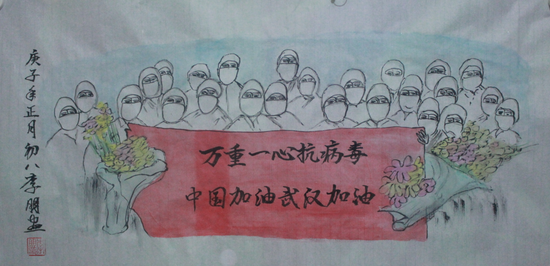 万重一心抗病毒
中国加油武汉加油
庚子年正月初八李朋画